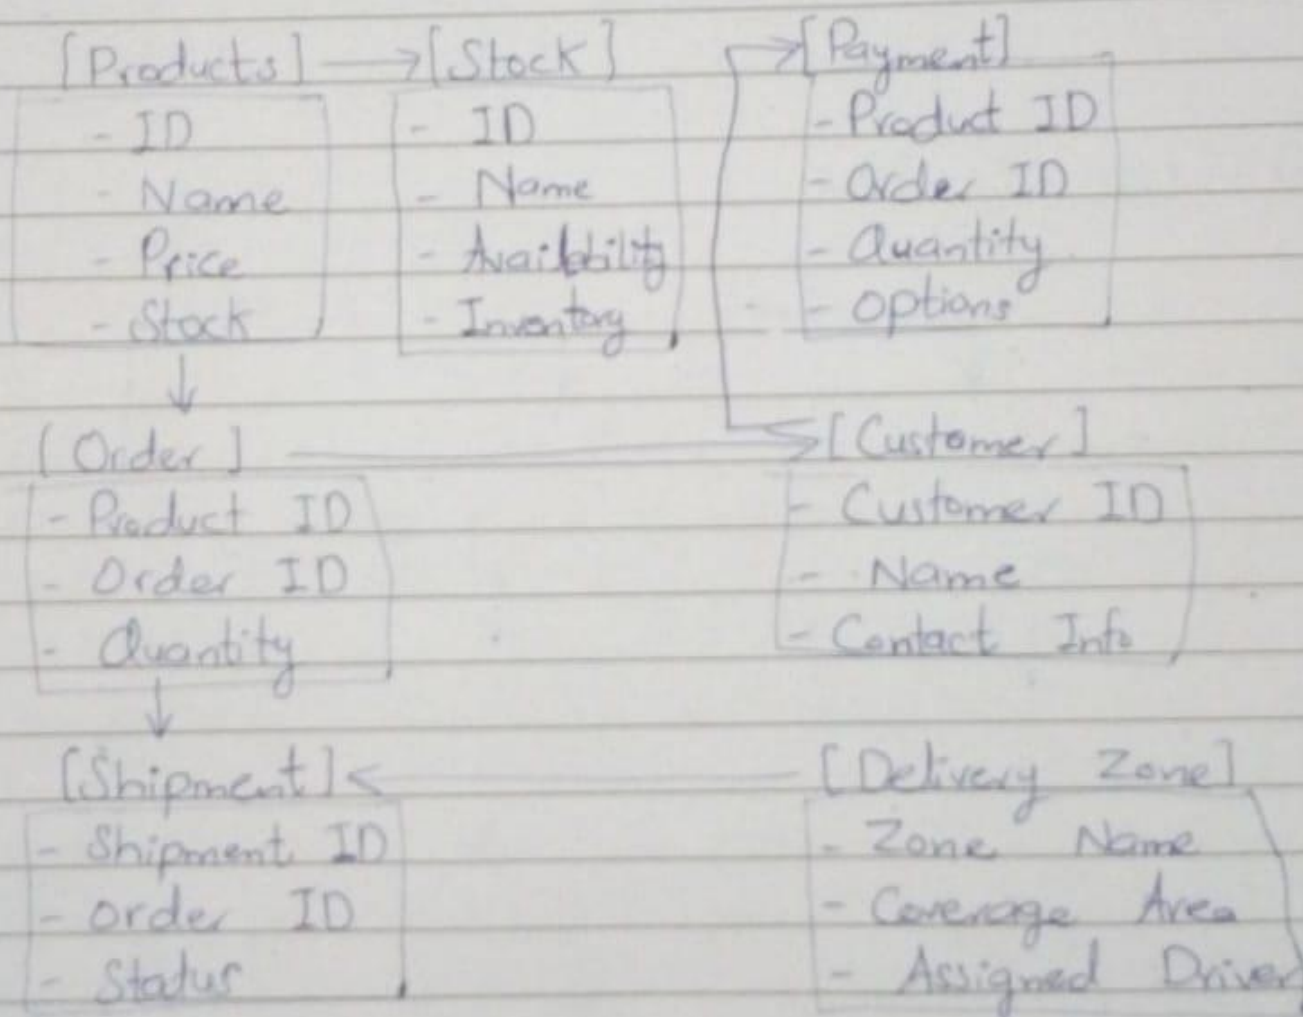 [Products] → [Stock]
- ID
- Name
- Price
- Stock
- ID
- Name
- Availability
- Inventory
→ [Payment]
- Product ID
- Order ID
- Quantity
- Options
↓
[Order] → [Customer]
- Product ID
- Order ID
- Quantity
- Customer ID
- Name
- Contact Info
↓
[Shipment] ← [Delivery Zone]
- Shipment ID
- Order ID
- Status
- Zone Name
- Coverage Area
- Assigned Driver